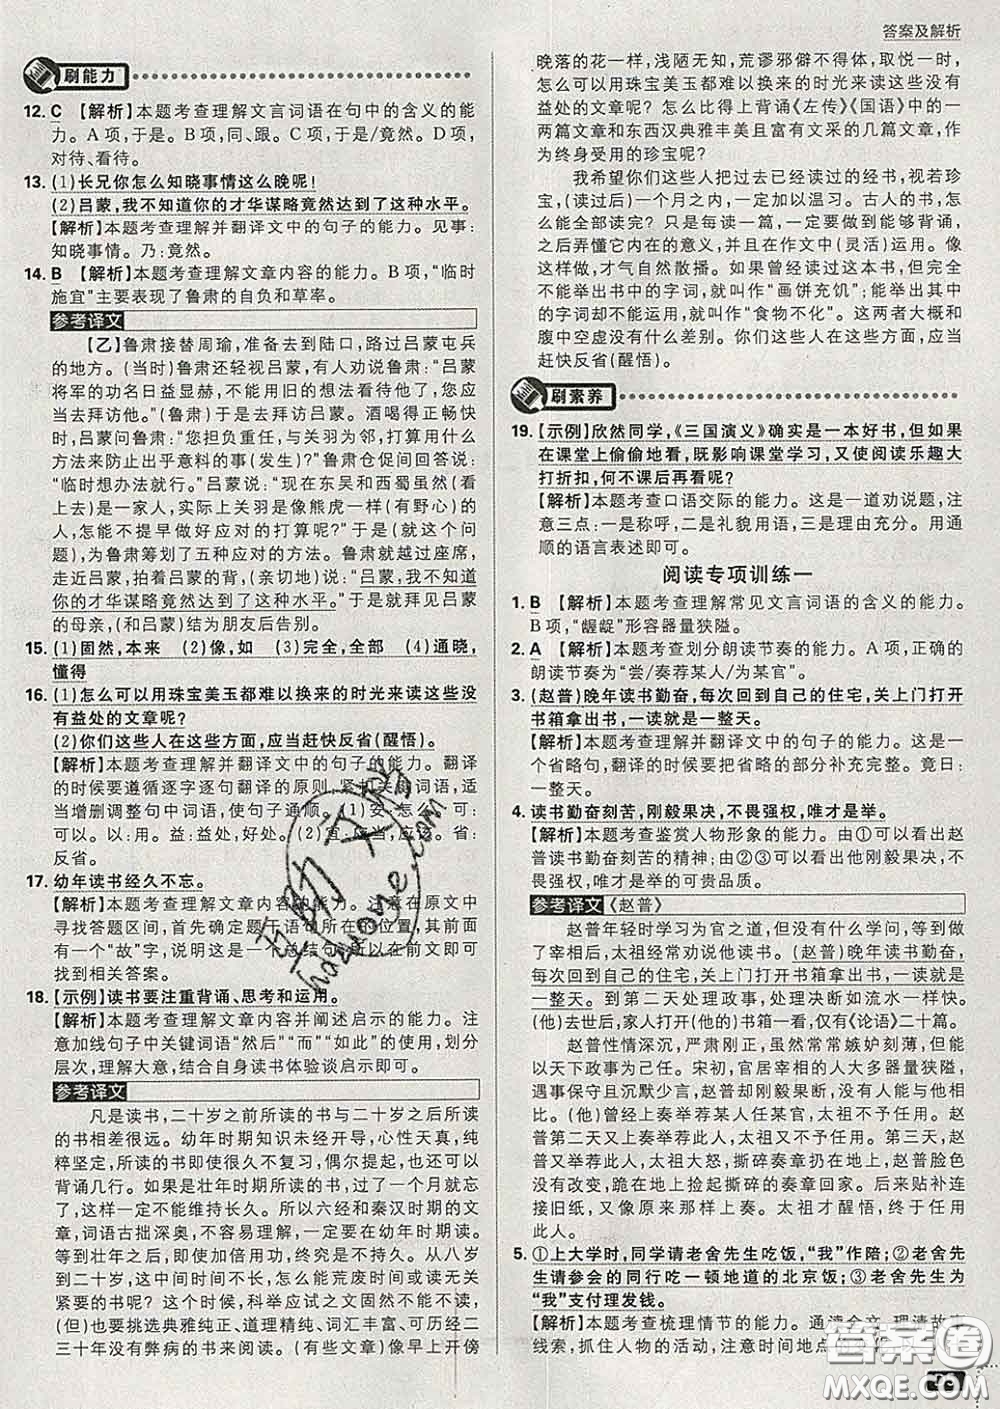 答案及解析
刷能力
12. C 【解析】本题考查理解文言词语在句中的含义的能
力。A项,于是。B项,同、跟。C项,于是/竟然。D项,
对待、看待。
13. (1)长兄你怎么知晓事情这么晚呢!
(2)吕蒙,我不知道你的才华谋略竟然达到了这种水平。
【解析】本题考查理解并翻译文中的句子的能力。见事:
知晓事情。乃:竟然。
14. B 【解析】本题考查理解文章内容的能力。B项,“临时
施宜”主要表现了鲁肃的自负和草率。
参考译文
【乙】鲁肃接替周瑜,准备去到陆口,路过吕蒙屯兵
的地方。(当时)鲁肃还轻视吕蒙,有人劝说鲁肃:“吕蒙
将军的功名日益显赫,不能用旧的想法看待他了,您应
当去拜访他。”(鲁肃)于是去拜访吕蒙。酒喝得正畅快
时,吕蒙问鲁肃:“您担负重任,与关羽为邻,打算用什么
方法来防止出乎意料的事(发生)?”鲁肃仓促间回答说:
“临时想办法就行。”吕蒙说:“现在东吴和西蜀虽然(看
上去)是一家人,实际上关羽是像熊虎一样(有野心)的
人,怎能不提早做好应对的打算呢?”于是(就这个问
题),为鲁肃筹划了五种应对的方法。鲁肃就越过座席,
走近吕蒙,拍着吕蒙的背,(亲切地)说:“吕蒙,我不知道
你的才华谋略竟然达到了这种水平。”于是拜见吕蒙
的母亲,(和吕蒙)结为朋友后告别。
15. (1)固然,本来 (2)像,如 (3)完全,全部 (4)通晓,
懂得
16. (1)怎么可以用珠宝美玉都难以换来的时光来读这些没
有益处的文章呢?
(2)你们这些人在这些方面,应当赶快反省(醒悟)。
【解析】本题考查理解并翻译文中的句子的能力。翻译
的时候要遵循逐字逐句翻译的原则,紧扣关键词语,适
当增删调整句中词语,使句子通顺。(1)安:怎么。可:
可以。以:用。益:益处,好处。(2)宜:应当,应该。省:
反省。
17. 幼年读书经久不忘。
【解析】本题考查理解文章内容的能力。注意在原文中
寻找答题区间,首先确定题干语句所在的位置,其前面
有一个“故”字,说明这是一个总结句,所以在前文即可
找到相关答案。
18. 【示例】读书要注重背诵、思考和运用。
【解析】本题考查理解文章内容并阐述启示的能力。注
意加线句子中关键词语“然后”“而”“如此”的使用,划分
层次,理解大意,结合自身读书体验谈启示即可。
参考译文
凡是读书,二十岁之前所读的书与二十岁之后所读
的书相差很远。幼年时期知识未经开导,心性天真,纯
粹坚定,所读的书即使很久不复习,偶尔提到,还可以
背诵几行。如果是壮年时期所读的书,过了一个月就忘
了,一定不能维持长久。所以六经和秦汉时期的文
章,词语古拙深奥,不容易理解,一定要在幼年时期读。
等到壮年之后,即使加倍用功,终究是不持久。从八岁
到二十岁,这中间时间不长,怎么能荒废时间或读无关
紧要的书呢?这个时候,科举应试之文固然不能不读,
(但)也要挑选典雅纯正、道理精纯、词汇丰富、可行二
三十年没有弊病的书来阅读。(有些文章)像早上开傍
晚落的花一样,浅陋无知、荒谬邪僻不得体,取悦一时,
怎么可以用珠宝美玉都难以换来的时光来读这些没有
益处的文章呢?怎么比得上背诵《左传》《国语》中的一
两篇文章和东西汉典雅丰美且富有文采的几篇文章,作
为终身受用的珍宝呢?
我希望你们这些人把过去已经读过的经书,视若珍
宝,(读过后)一个月之内,一定加以温习。古人的书,怎
么能全部读完?只是每读一篇,一定要做到能够背诵,
之后弄懂它内在的意义,并在作文中(灵活)运用。像
这样,才气自然散播。如果曾经读过这本书,但完全
不能举出书中的字词,就叫作“画饼充饥”;能举出其中
的字词却不能运用,就叫作“食物不化”。这两者大概和
腹中空虚没有什么差别。你们这些人在这些方面,应当
赶快反省(醒悟)。
刷素养
19. 【示例】欣然同学,《三国演义》确实是一本好书,但如果
在课堂上偷偷地看,既影响课堂学习,又使阅读乐趣大
打折扣,何不课后再看呢?
【解析】本题考查口语交际的能力。这是一道劝说题,注
意三点:一是称呼,二是礼貌用语,三是理由充分。用通
顺的语言表述即可。
阅读专项训练一
1. B 【解析】本题考查理解常见文言词语的含义的能力。
B项,“龌龊”形容器量狭隘。
2. A 【解析】本题考查划分朗读节奏的能力。A项,正确
的朗读节奏为“尝/奏荐某人/为某官”。
3. (赵普)晚年读书勤奋,每次回到自己的住宅,关上门打开
书箱拿出书,一读就是一整天。
【解析】本题考查理解并翻译文中的句子的能力。这是一
个省略句,翻译的时候要把省略的部分补充完整。竟日:
一整天。
4. 读书勤奋刻苦,刚毅果决,不畏强权,唯才是举。
【解析】本题考查鉴赏人物形象的能力。由①可以看出赵
普读书勤奋刻苦的精神;由②③可以看出他刚毅果决、不
畏强权、唯才是举的可贵品质。
参考译文 《赵普》
赵普年轻时学习为官之道,但没有什么学问,等到做
了宰相后,太祖经常劝说他读书。(赵普)晚年读书勤奋,
每次回到自己的住宅,关上门打开书箱拿出书,一读就是
一整天。到第二天处理政事,决断如流水一样快。
(他)去世后,家人打开(他的)书箱一看,仅有《论语》二十篇。
赵普性情深沉,严肃刚正,虽然常常嫉妒刻薄,但能
以天下政事为己任。宋初,官居宰相的人大多器量狭隘,
遇事保守且沉默少言,赵普却刚毅果断,没有人能与他相
比。(他)曾经上奏举荐某人任某官,太祖不予任用。
赵普第二天又上奏举荐此人,太祖又不予任用。第三天,赵
普还举荐此人,太祖大怒,撕碎奏章扔在地上,赵普脸色
没有改变,跪在地上捡起撕碎的奏章回家。过后贴补连
接旧纸,又像原来那样上奏。太祖才醒悟,终于任用了
此人。
5. ①上大学时,同学请老舍先生吃饭,“我”作陪;②老舍先
生请参会的同行吃一顿地道的北京饭;③老舍先生为
“我”支付理发钱。
【解析】本题考查梳理情节的能力。通读全文,理清故事
线索,抓住人物的活动,注意时间地点
答案圈
MXQE.COM